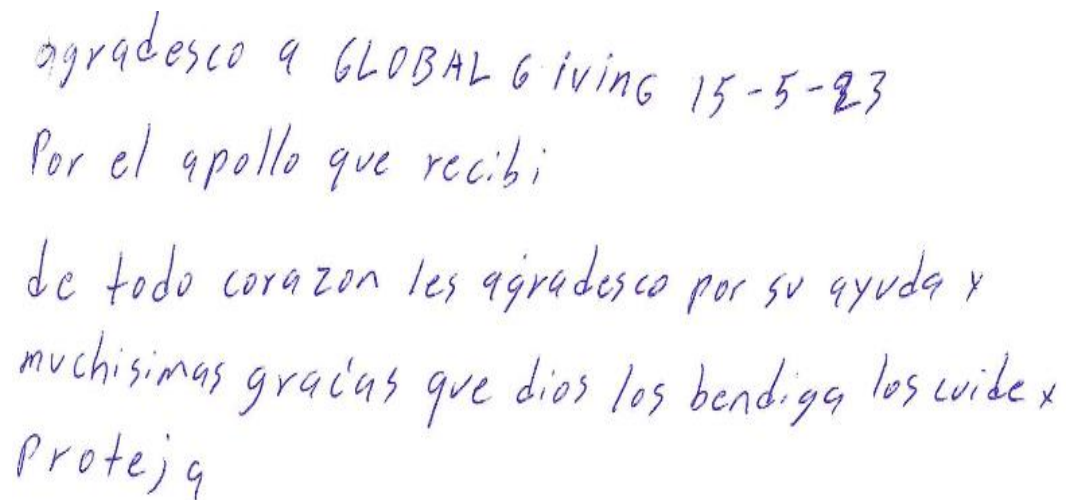 agradesco a GLOBAL Giving 15-5-23
Por el apollo que recibi
de todo corazon les agradesco por su ayuda y
muchisimas gracias que dios los bendiga los cuide y
Proteja